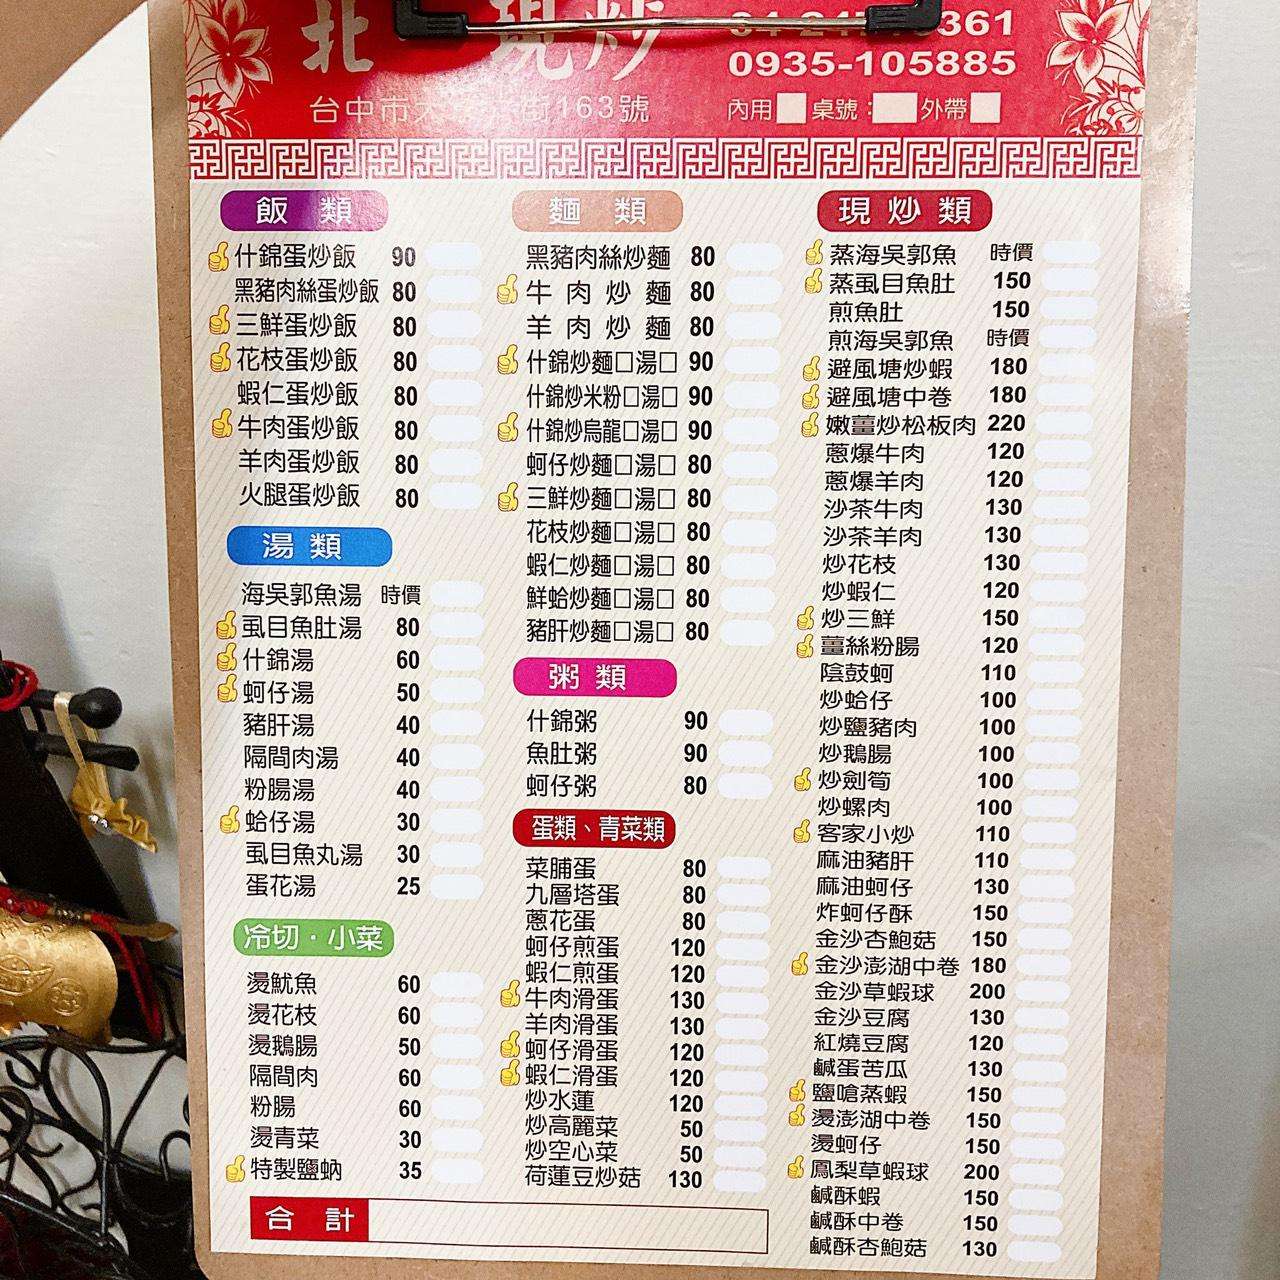 北 現炒
361
0935-105885
台中市 街163號
內用 桌號： 外帶
飯類
什錦蛋炒飯 90
黑豬肉絲蛋炒飯 80
三鮮蛋炒飯 80
花枝蛋炒飯 80
蝦仁蛋炒飯 80
牛肉蛋炒飯 80
羊肉蛋炒飯 80
火腿蛋炒飯 80
湯類
海吳郭魚湯 時價
虱目魚肚湯 80
什錦湯 60
蚵仔湯 50
豬肝湯 40
隔間肉湯 40
粉腸湯 40
蛤仔湯 30
虱目魚丸湯 30
蛋花湯 25
冷切·小菜
燙魷魚 60
燙花枝 60
燙鵝腸 50
隔間肉 60
粉腸 60
燙青菜 30
特製鹽蚋 35
麵類
黑豬肉絲炒麵 80
牛肉炒麵 80
羊肉炒麵 80
什錦炒麵□湯□ 90
什錦炒米粉□湯□ 90
什錦炒烏龍□湯□ 90
蚵仔炒麵□湯□ 80
三鮮炒麵□湯□ 80
花枝炒麵□湯□ 80
蝦仁炒麵□湯□ 80
鮮蛤炒麵□湯□ 80
豬肝炒麵□湯□ 80
粥類
什錦粥 90
魚肚粥 90
蚵仔粥 80
蛋類、青菜類
菜脯蛋 80
九層塔蛋 80
蔥花蛋 80
蚵仔煎蛋 120
蝦仁煎蛋 120
牛肉滑蛋 130
羊肉滑蛋 130
蚵仔滑蛋 120
蝦仁滑蛋 120
炒水蓮 120
炒高麗菜 50
炒空心菜 50
荷蓮豆炒菇 130
現炒類
蒸海吳郭魚 時價
蒸虱目魚肚 150
煎魚肚 150
煎海吳郭魚 時價
避風塘炒蝦 180
避風塘中卷 180
嫩薑炒松板肉 220
蔥爆牛肉 120
蔥爆羊肉 120
沙茶牛肉 130
沙茶羊肉 130
炒花枝 130
炒蝦仁 120
炒三鮮 150
薑絲粉腸 120
陰鼓蚵 110
炒蛤仔 100
炒鹽豬肉 100
炒鵝腸 100
炒劍筍 100
炒螺肉 100
客家小炒 110
麻油豬肝 110
麻油蚵仔 130
炸蚵仔酥 150
金沙杏鮑菇 150
金沙澎湖中卷 180
金沙草蝦球 200
金沙豆腐 130
紅燒豆腐 120
鹹蛋苦瓜 130
鹽嗆蒸蝦 150
燙澎湖中卷 150
燙蚵仔 150
鳳梨草蝦球 200
鹹酥蝦 150
鹹酥中卷 150
鹹酥杏鮑菇 130
合計